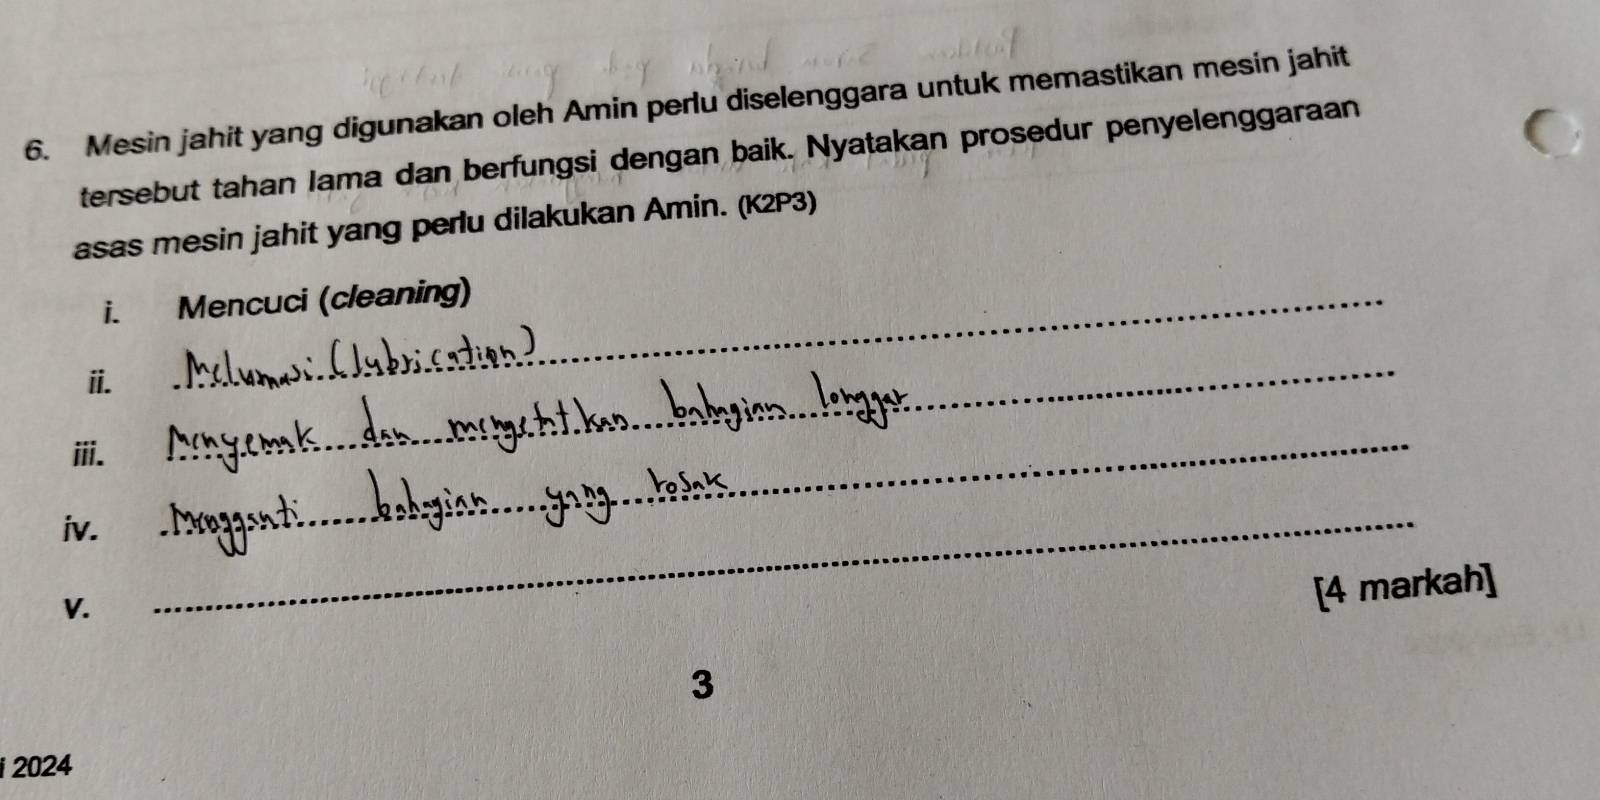 6. Mesin jahit yang digunakan oleh Amin perlu diselenggara untuk memastikan mesin jahit
tersebut tahan lama dan berfungsi dengan baik. Nyatakan prosedur penyelenggaraan
asas mesin jahit yang perlu dilakukan Amin. (K2P3)
i. Mencuci (cleaning)
ii. Melumasi (lubrication)
iii. Menyemak dan mengetatkan bahagian longgar
iv. Mengganti bahagian yang rosak
v.
[4 markah]
3
i 2024